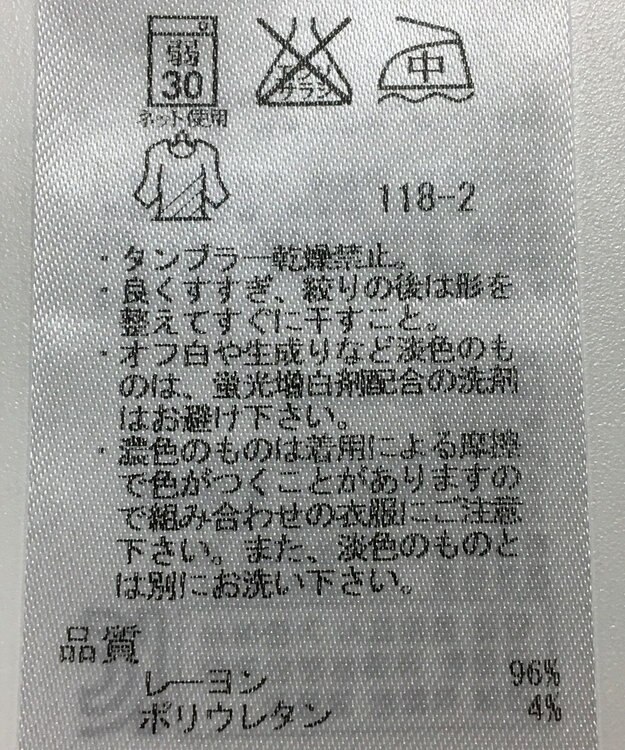 弱
30
ネット使用
エンソ
サラシ
中
118-2
・タンブラー乾燥禁止。
・良くすすぎ、絞りの後は形を
整えてすぐに干すこと。
・オフ白や生成りなど淡色のも
のは、蛍光増白剤配合の洗剤
はお避け下さい。
・濃色のものは着用による摩擦
で色がつくことがありますの
で組み合わせの衣服にご注意
下さい。また、淡色のものと
は別にお洗い下さい。
品質
レーヨン 96%
ポリウレタン 4%